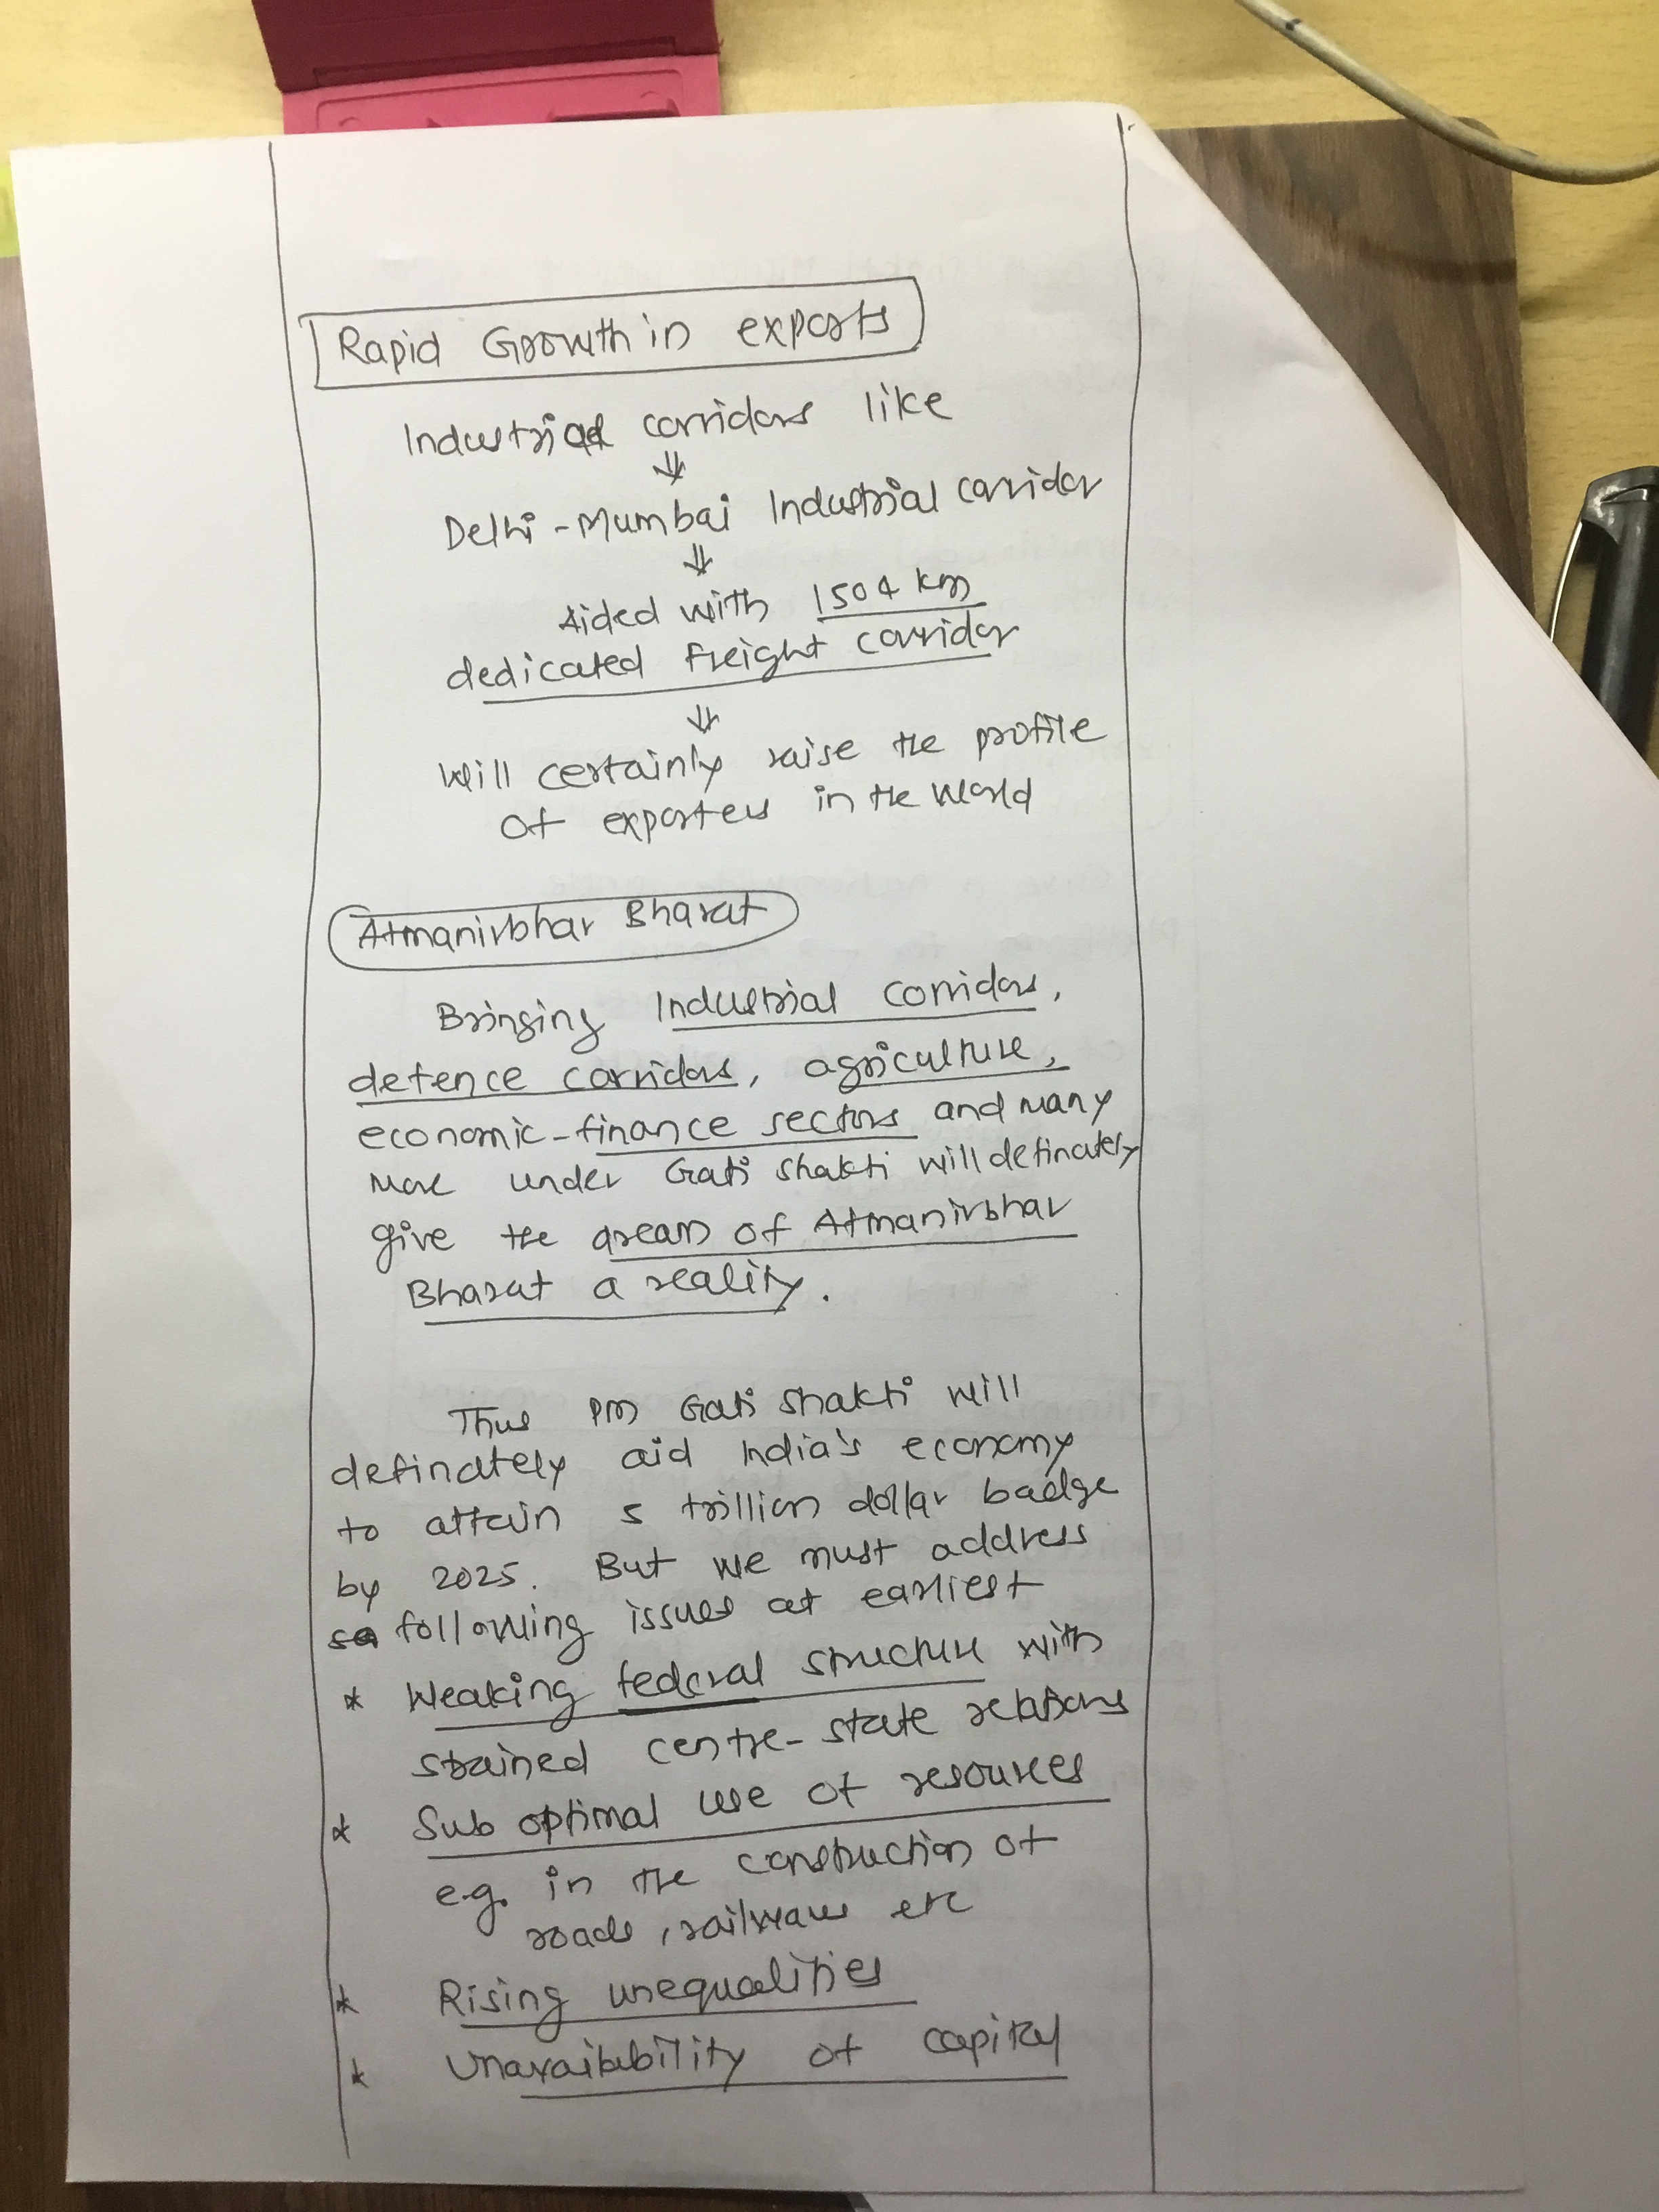 Rapid Growth in exports
Industrial corridors like
⇓
Delhi - Mumbai Industrial corridor
⇓
Aided with 1504 km
dedicated freight corridor
⇓
Will certainly raise the profile
of exporters in the World
Atmanirbhar Bharat
Bringing Industrial corridors,
defence corridors, agriculture,
economic-finance sectors and many
more under Gati Shakti will definately
give the dream of Atmanirbhar
Bharat a reality.
Thus PM Gati Shakti will
definately aid India's economy
to attain 5 trillion dollar badge
by 2025. But we must address
following issues at earliest
* Weaking federal structure with
strained centre-state relations
* Sub optimal use of resources
e.g. in the construction of
roads, railwaus etc
* Rising unequalities
* Unavaibility of capital